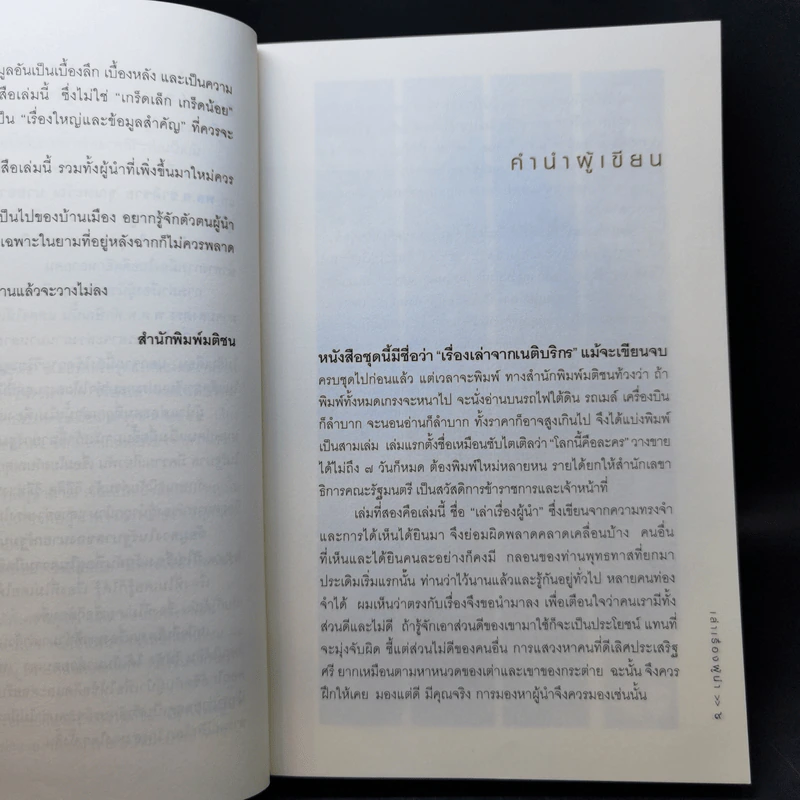 มูลอันเป็นเบื้องลึก เบื้องหลัง และเป็นความ
สือเล่มนี้ ซึ่งไม่ใช่ "เกร็ดเล็ก เกร็ดน้อย"
ป็น "เรื่องใหญ่และข้อมูลสำคัญ" ที่ควรจะ
สือเล่มนี้ รวมทั้งผู้นำที่เพิ่งขึ้นมาใหม่ควร
ป็นไปของบ้านเมือง อยากรู้จักตัวตนผู้นำ
เฉพาะในยามที่อยู่หลังฉากก็ไม่ควรพลาด
านแล้วจะวางไม่ลง
สำนักพิมพ์มติชน
คำนำผู้เขียน
หนังสือชุดนี้มีชื่อว่า "เรื่องเล่าจากเนติบริกร" แม้จะเขียนจบ
ครบชุดไปก่อนแล้ว แต่เวลาจะพิมพ์ ทางสำนักพิมพ์มติชนท้วงว่า ถ้า
พิมพ์ทั้งหมดเกรงจะหนาไป จะนั่งอ่านบนรถไฟใต้ดิน รถเมล์ เครื่องบิน
ก็ลำบาก จะนอนอ่านก็ลำบาก ทั้งราคาก็อาจสูงเกินไป จึงได้แบ่งพิมพ์
เป็นสามเล่ม เล่มแรกตั้งชื่อเหมือนซับไตเติลว่า "โลกนี้คือละคร" วางขาย
ได้ไม่ถึง ๗ วันก็หมด ต้องพิมพ์ใหม่หลายหน รายได้ยกให้สำนักเลขา
ธิการคณะรัฐมนตรี เป็นสวัสดิการข้าราชการและเจ้าหน้าที่
เล่มที่สองคือเล่มนี้ ชื่อ "เล่าเรื่องผู้นำ" ซึ่งเขียนจากความทรงจำ
และการได้เห็นได้ยินมา จึงย่อมผิดพลาดคลาดเคลื่อนบ้าง คนอื่น
ที่เห็นและได้ยินคนละอย่างก็คงมี กลอนของท่านพุทธทาสที่ยกมา
ประเดิมเริ่มแรกนั้น ท่านว่าไว้นานแล้วและรู้กันอยู่ทั่วไป หลายคนท่อง
จำได้ ผมเห็นว่าตรงกับเรื่องจึงขอนำมาลง เพื่อเตือนใจว่าคนเรามีทั้ง
ส่วนดีและไม่ดี ถ้ารู้จักเอาส่วนดีของเขามาใช้ก็จะเป็นประโยชน์ แทนที่
จะมุ่งจับผิด ชี้แต่ส่วนไม่ดีของคนอื่น การแสวงหาคนที่ดีเลิศประเสริฐ
ศรี ยากเหมือนตามหาหนวดของเต่าและเขาของกระต่าย ฉะนั้น จึงควร
ฝึกให้เคย มองแต่ดี มีคุณจริง การมองหาผู้นำจึงควรมองเช่นนั้น
เล่าเรื่องผู้นำ >> ๕